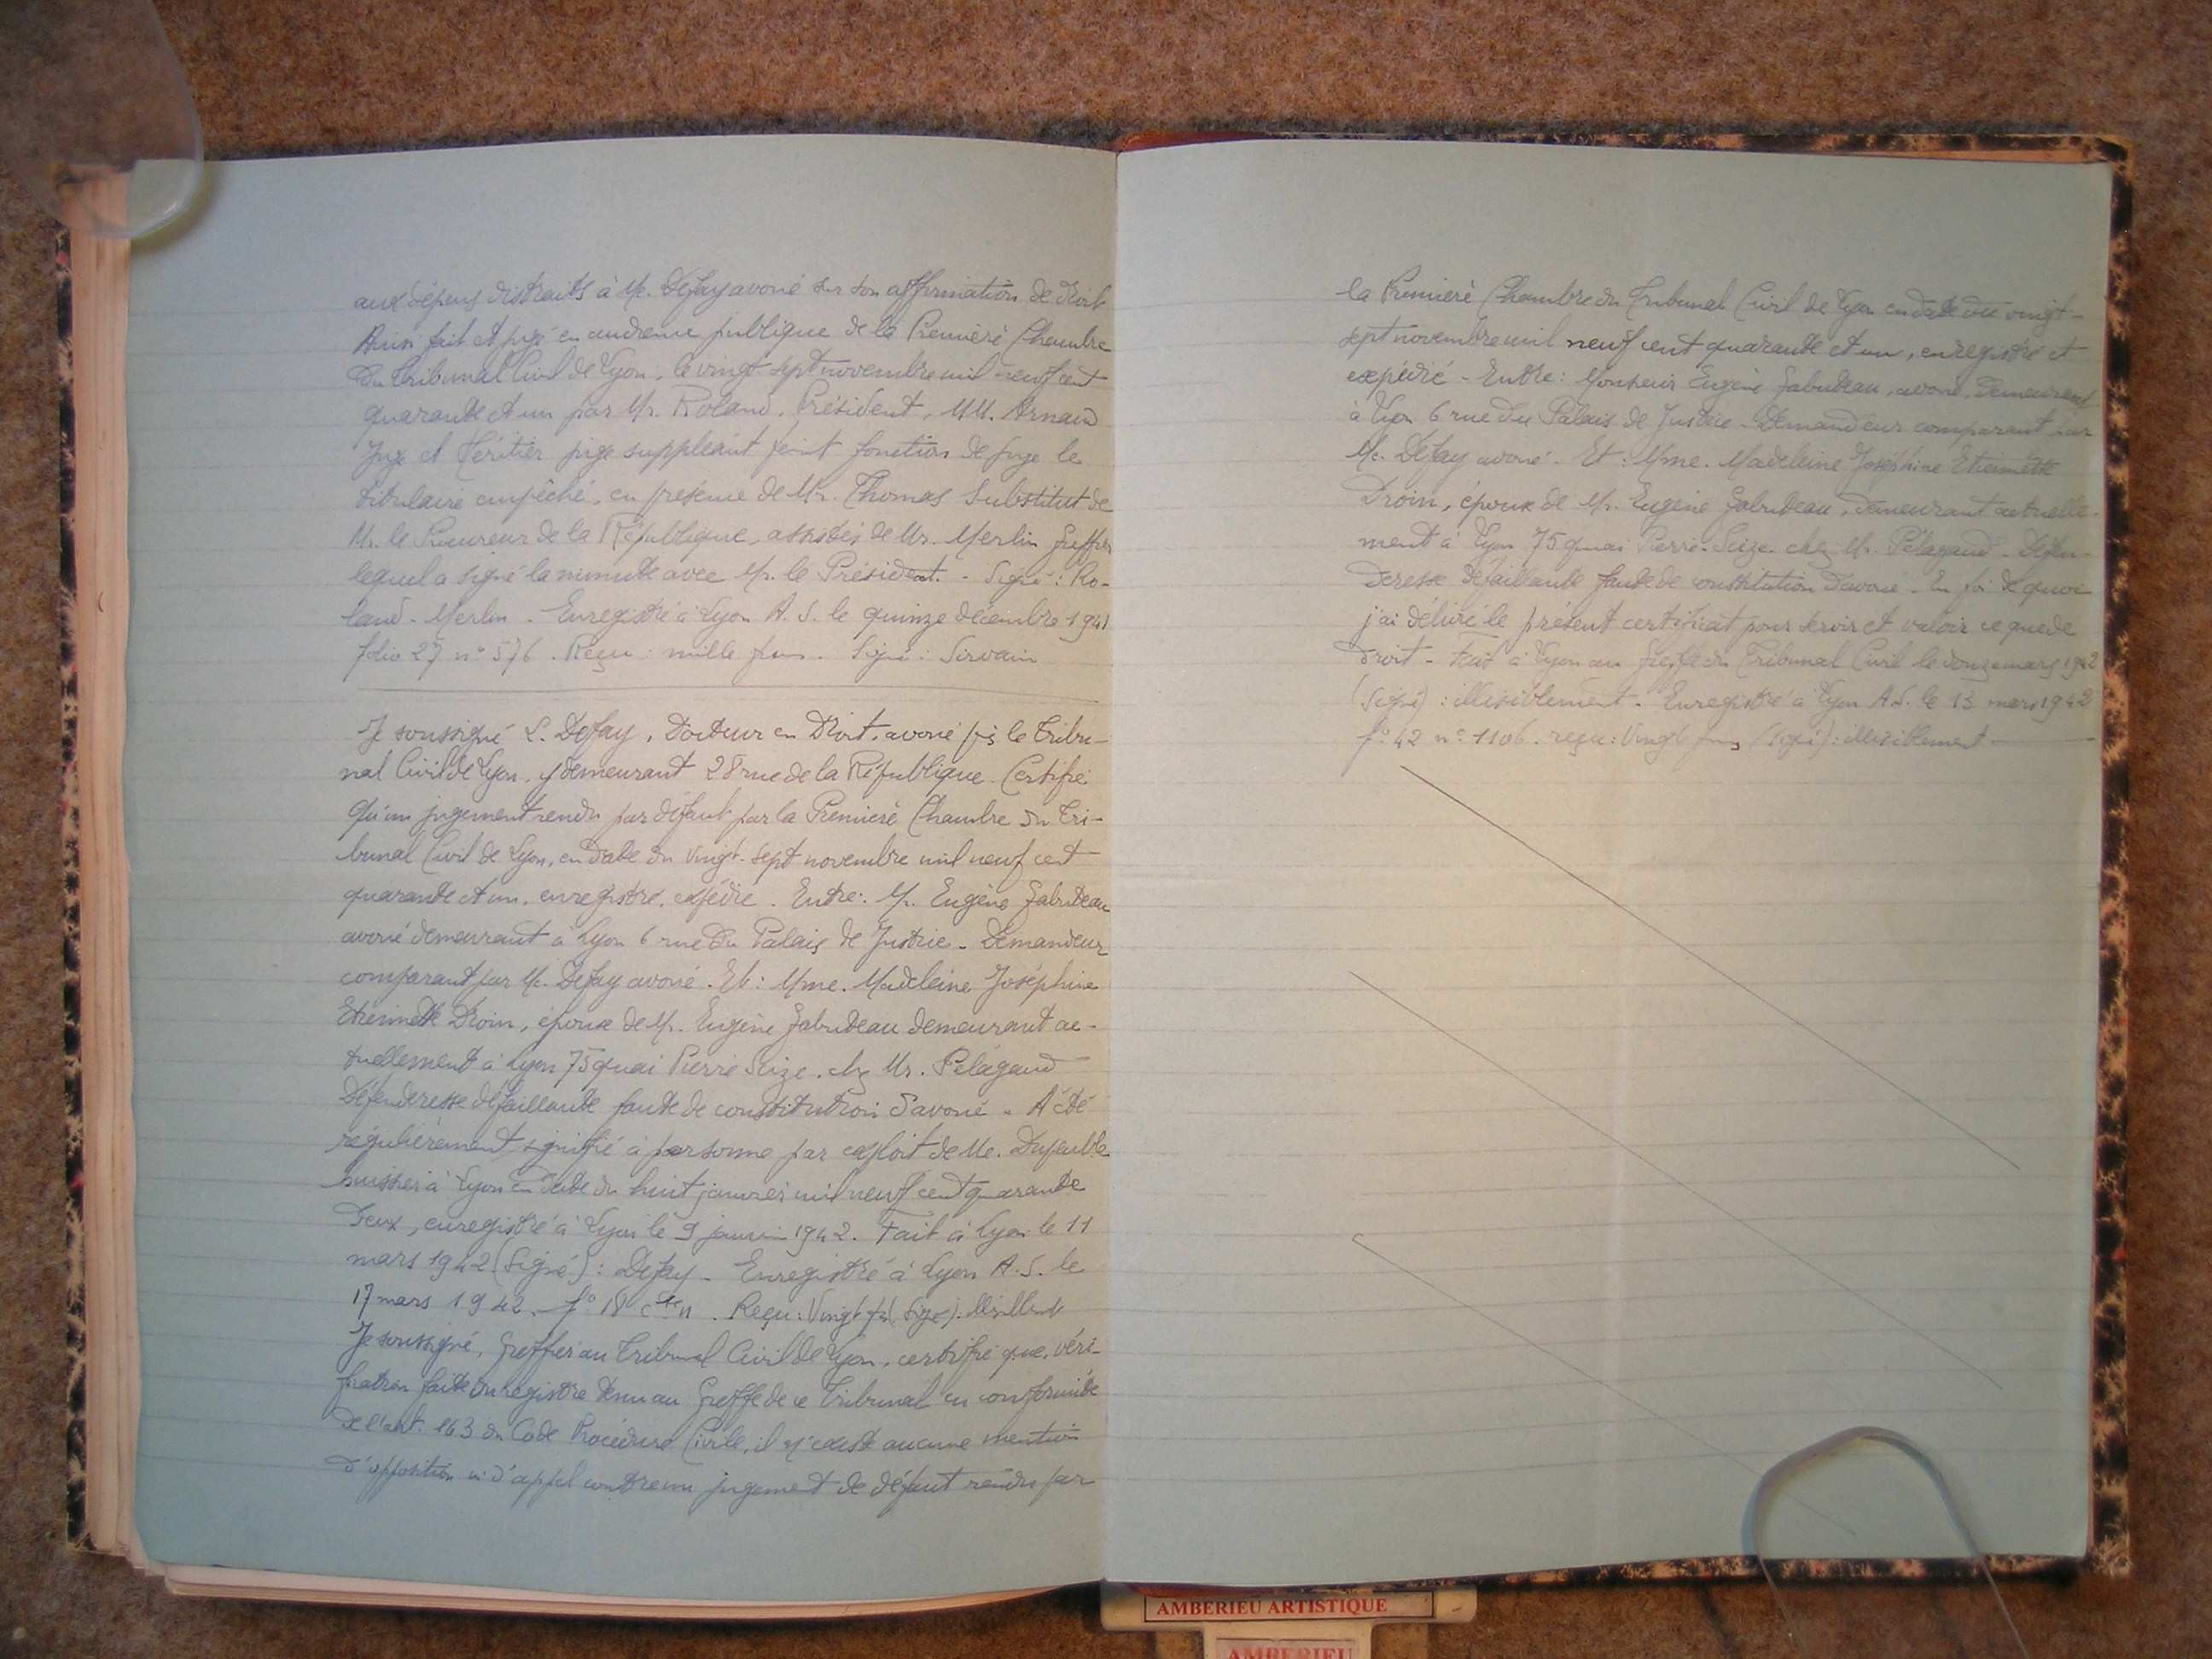 aux dépens distraits à Me. Defay avoué sur son affirmation de droit
Ainsi fait et jugé en audience publique de la Première Chambre
du Tribunal Civil de Lyon, le vingt-sept novembre mil neuf cent
quarante et un par Mr. Roland, Président, MM. Arnaud
Juge et Péritier juge suppléant faist fonction de juge le
titulaire empêché, en présence de Mr. Thomas Substitut de
Mr. le Procureur de la République, assistés de Mr. Merlin greffier
lequel a signé la minute avec Mr. le Président. - Signé : Ro-
land - Merlin - Enregistré à Lyon A. J. le quinze décembre 1941
folio 27 n° 576. Reçu : mille frs. Signé : Sirvain
Je soussigné L. Defay, Docteur en Droit, avoué près le Tribu-
nal Civil de Lyon, y demeurant 28 rue de la République. Certifie
qu'un jugement rendu par défaut par la Première Chambre du Tri-
bunal Civil de Lyon, en date du vingt-sept novembre mil neuf cent
quarante et un, enregistré, expédié - Entre : Mr. Eugène Gabuteau
avoué demeurant à Lyon 6 rue du Palais de Justice - Demandeur
comparant par Me. Defay avoué. Et : Mme. Madeleine Joséphine
Etiennette Droin, épouse de Mr. Eugène Gabuteau demeurant ac-
tuellement à Lyon 75 quai Pierre Scize, chez Mr. Pélagaud
Défenderesse défaillante faute de constitution d'avoué - A été
régulièrement signifié à personne par exploit de Me. Dupeuble
huissier à Lyon en date du huit janvier mil neuf cent quarante
deux, enregistré à Lyon le 9 janvier 1942. Fait à Lyon le 11
mars 1942 (Signé) : Defay - Enregistré à Lyon A. J. le
17 mars 1942. f° 18 . Reçu : Vingt frs (Signé) : illisiblemt
Je soussigné, Greffier au Tribunal Civil de Lyon, certifie que, véri-
fication faite du registre tenu au Greffe de ce Tribunal en conformité
de l'art. 163 du Code Procédure Civile, il n'existe aucune mention
d'opposition ni d'appel contre un jugement de défaut rendu par
la Première Chambre du Tribunal Civil de Lyon en date du vingt-
sept novembre mil neuf cent quarante et un, enregistré et
expédié - Entre : Monsieur Eugène Gabuteau, avoué, demeurant
à Lyon 6 rue du Palais de Justice - Demandeur comparant par
Me. Defay avoué - Et : Mme. Madeleine Joséphine Etiennette
Droin, épouse de Mr. Eugène Gabuteau, demeurant actuelle-
ment à Lyon 75 quai Pierre-Scize chez Mr. Pélagaud - Défen-
deresse défaillante faute de constitution d'avoué - En foi de quoi
j'ai délivré le présent certificat pour servir et valoir ce que de
droit - Fait à Lyon au Greffe du Tribunal Civil le douze mars 1942
(Signé) : illisiblement - Enregistré à Lyon A. J. le 13 mars 1942
f° 42 n° 1106. reçu : Vingt frs (Signé) : illisiblement
AMBERIEU ARTISTIQUE
AMBERIEU